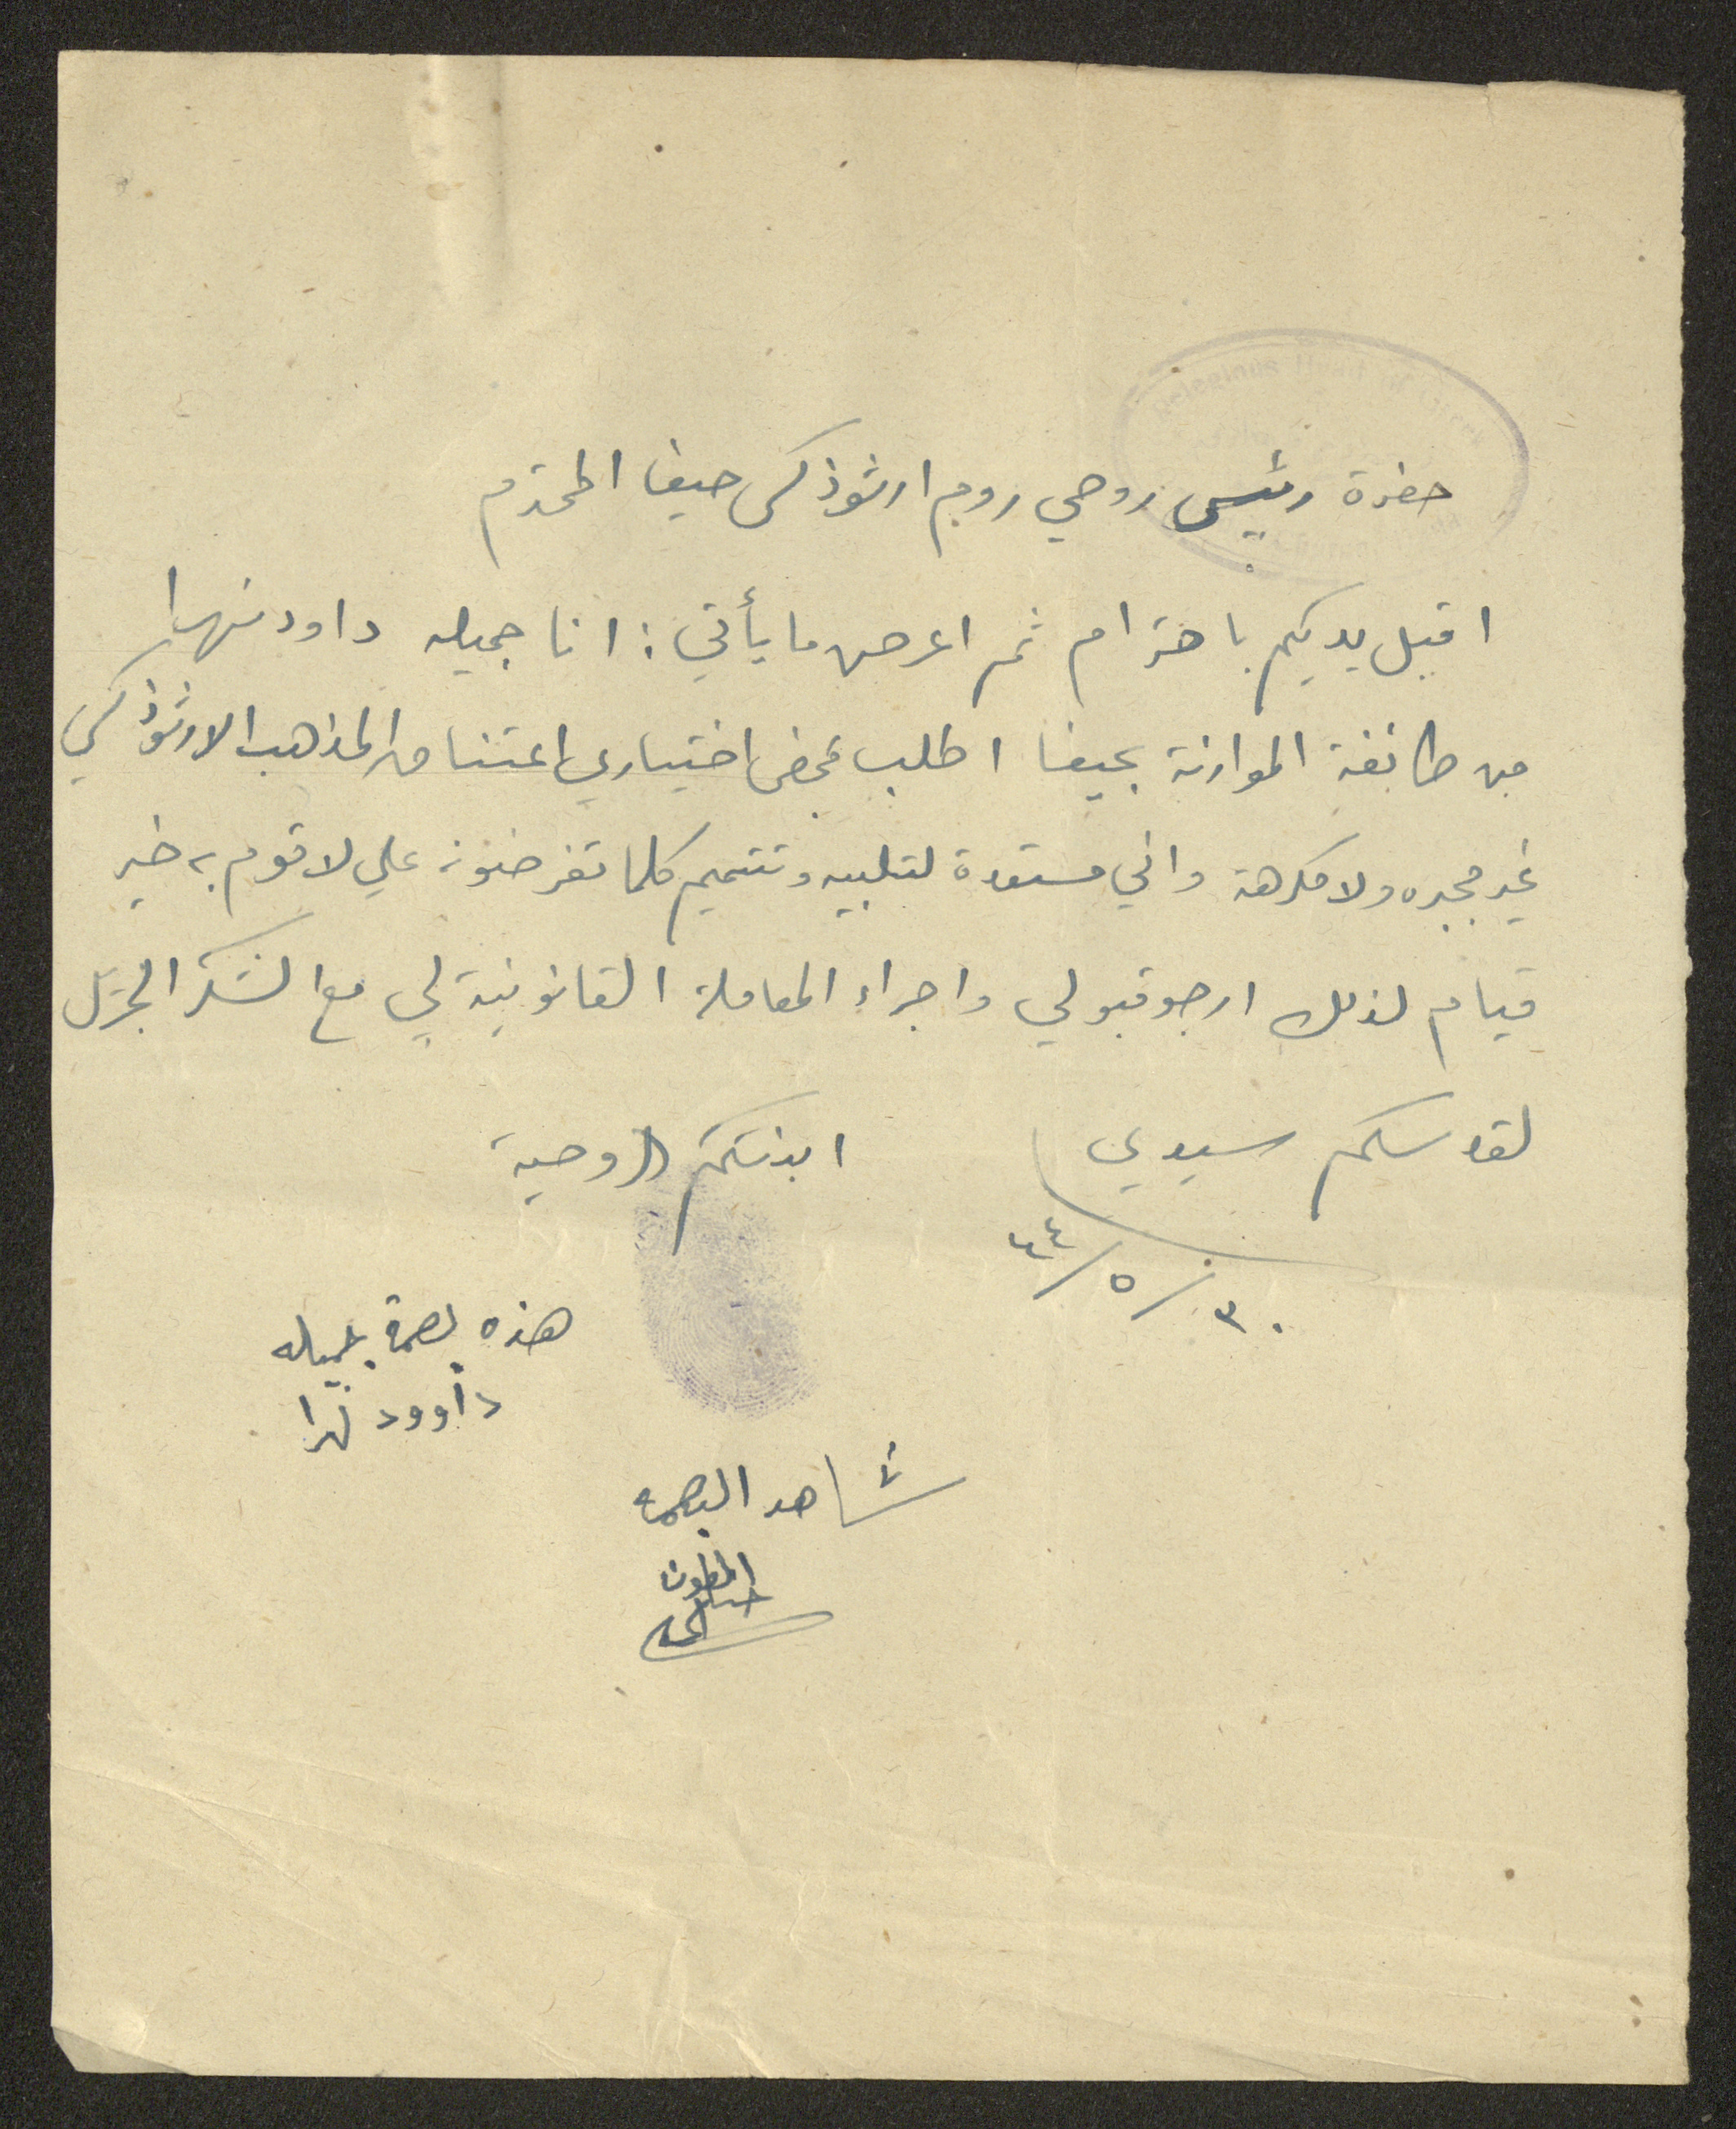 Relegious Head of Greek
حضرة رئيس روحي روم ارثوذكس حيفا المحترم
اقبل يديكم باحترام ثم اعرض ما يأتي : انا جميله داود نهرا
من طائفة الموارنة بحيفا اطلب بمحض اختياري اعتناق المذهب الارثوذكسي
غير مجبره ولا مكرهة واني مستعدة لتلبيه وتتميم كلما تفرضونه علي لاقوم به خير
قيام لذلك ارجو قبولي واجراء المعاملة القانونية لي مع الشكر الجزيل
لقدسكم سيدي ابنتكم الروحية
٣٠/٥/٤٤
هذه بصمة جميله
داوود نهرا
شاهد البصمه